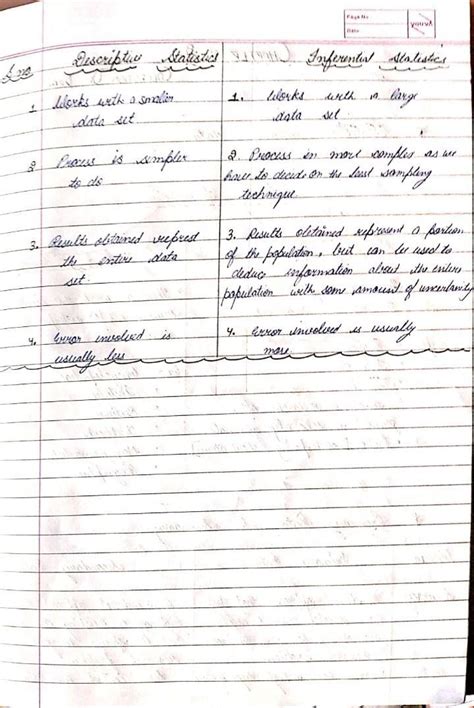 Page No.
Date
youva
S.no
Descriptive Statistics
Inferential Statistics
1. Works with a smaller
data set
1. Works with a large
data set
2. Process is simpler
to do
2. Process in more complex as we
have to decide on the best sampling
technique.
3. Results obtained represt
the entire data
set.
3. Results obtained represent a portion
of the population, but can be used to
deduce information about the entire
population with some amount of uncertainity
4. Error involved is
usually less
4. Error involved is usually
more